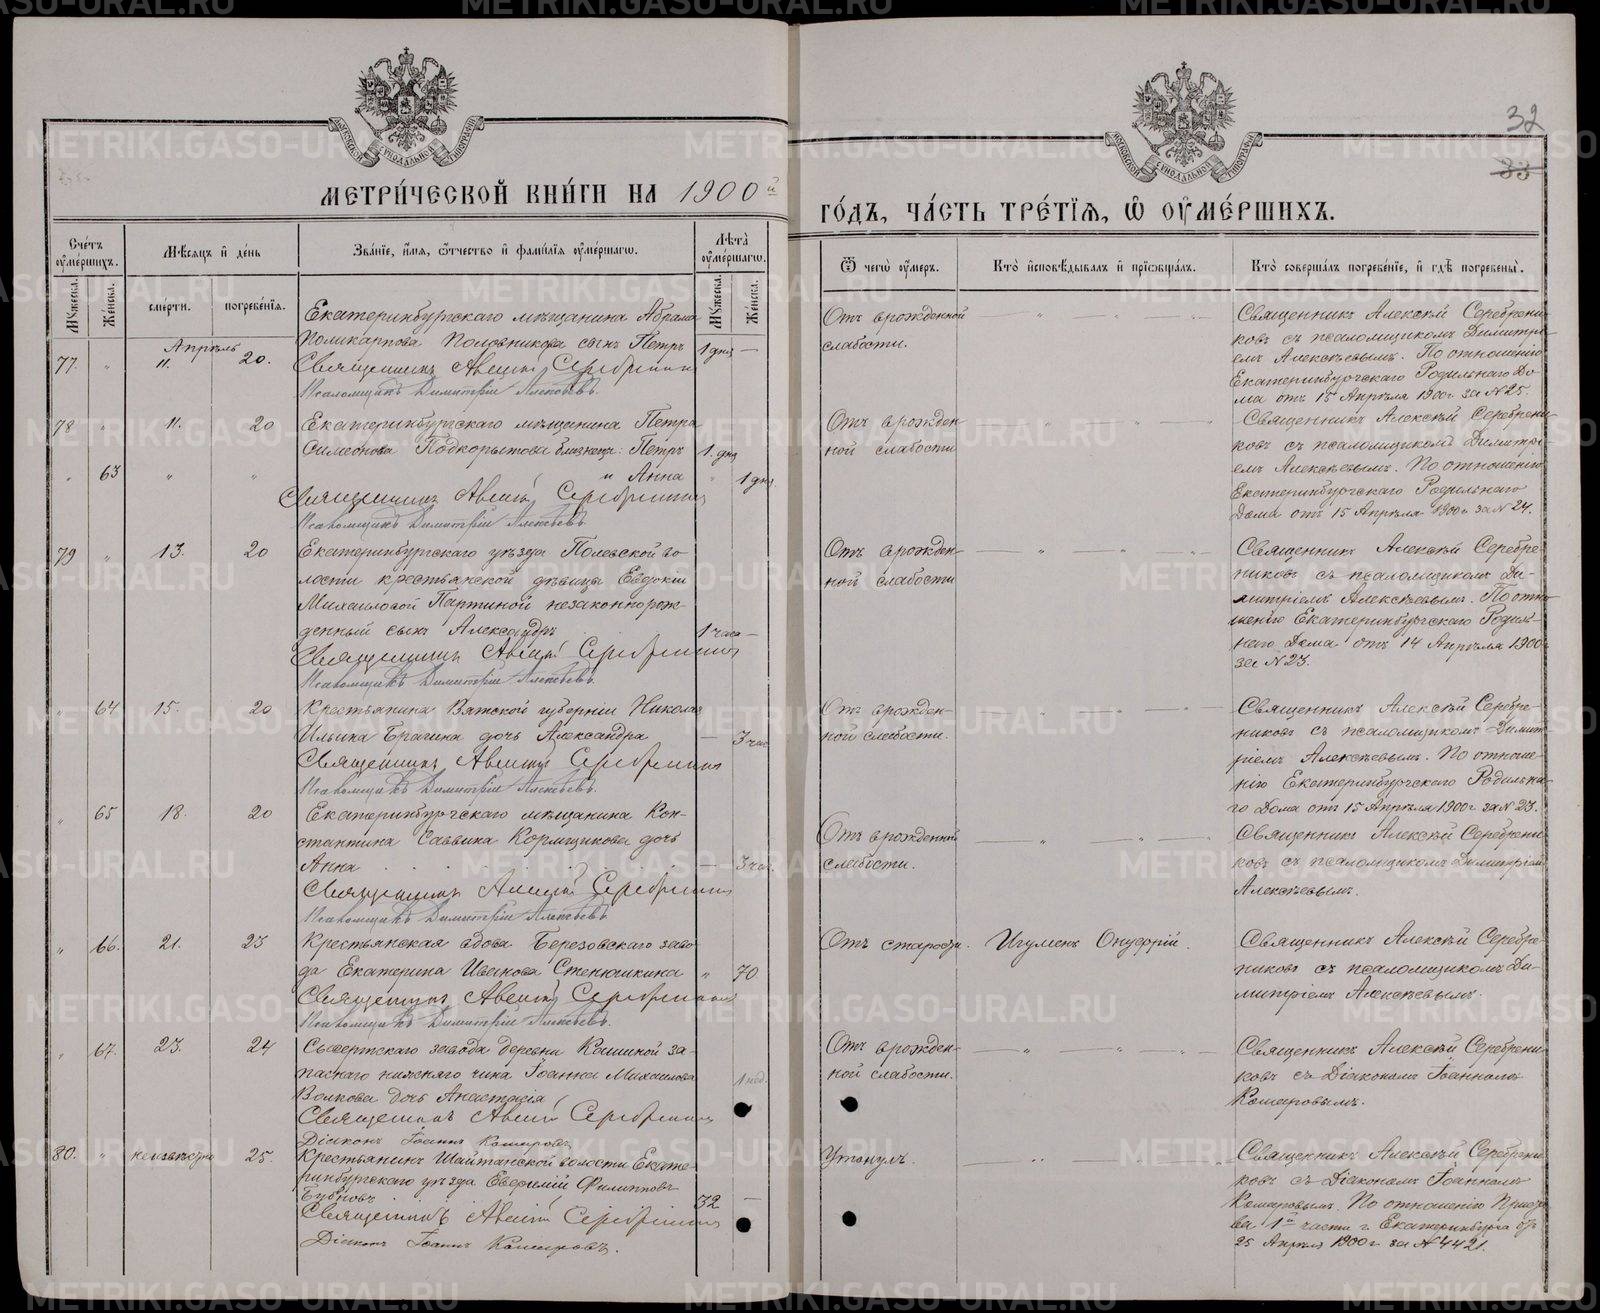 МЕТРИ́ЧЕСКОЙ КНИ́ГИ НА 1900й
ГО́ДЪ, ЧА́СТЬ ТРЕ́ТІЯ, Ѽ ОУ҆МЕ́РШИХЪ.
32
33
Сче́тъ оу҆ме́ршихъ.
Мꙋжеска.
Же́нска.
Мѣ́сяцъ и҆ де́нь
сме́рти.
погребе́нія.
Зва́ніе, и҆́мя, ѻ҆́тчество и҆ фами́лія оу҆ме́ршагѡ.
Лѣ́та оу҆ме́ршагѡ.
Мꙋжеска.
Же́нска.
Ѿ чегѡ̀ оу҆́меръ.
Кто̀ и҆сповѣ́дывалъ и҆ приѡбща́лъ.
Кто̀ соверша́лъ погребе́ніе, и҆ гдѣ̀ погребены̀.
Апрѣль
77. " 11. 20.
Екатеринбургскаго мѣщанина Абрама
Поликарпова Половникова сынъ Петръ 1 дня —
Священникъ Алексѣй Серебренниковъ
Псаломщикъ Димитрій Алексѣевъ.
Отъ врожденной
слабости.
Священникъ Алексѣй Серебрени-
ковъ съ псаломщикомъ Димитрі-
емъ Алексѣевымъ. По отношенію
Екатеринбургскаго Родильнаго До-
ма отъ 15 Апрѣля 1900 г. за № 25.
78 " 11. 20
Екатеринбургскаго мѣщанина Петра
Симеонова Подкорытова близнецы: Петръ 1. дня
" 63 " "
и Анна " 1 дня.
Священникъ Алексѣй Серебренниковъ
Псаломщикъ Димитрій Алексѣевъ.
Отъ врожден-
ной слабости
Священникъ Алексѣй Серебрени-
ковъ съ псаломщикомъ Димитрі-
емъ Алексѣевымъ. По отношенію
Екатеринбургскаго Родильнаго
Дома отъ 15 Апрѣля 1900 г. за № 24.
79 " 13. 20
Екатеринбургскаго уѣзда Полевской во-
лости крестьянской дѣвицы Евдокіи
Михаиловой Партиной незаконнорож-
денный сынъ Александръ 1 часа —
Священникъ Алексѣй Серебренниковъ
Псаломщикъ Димитрій Алексѣевъ.
Отъ врожден-
ной слабости
Священникъ Алексѣй Серебре-
никовъ съ псаломщикомъ Ди-
митріемъ Алексѣевымъ. По отно-
шенію Екатеринбургскаго Родиль-
наго Дома отъ 14 Апрѣля 1900 г.
за № 23.
" 64 15. 20
Крестьянина Вятской губерніи Николая
Ильина Брагина дочь Александра — 3 час.
Священникъ Алексѣй Серебренниковъ
Псаломщикъ Димитрій Алексѣевъ.
Отъ врожден-
ной слабости.
Священникъ Алексѣй Серебре-
никовъ съ псаломщикомъ Димит-
ріемъ Алексѣевымъ. По отноше-
нію Екатеринбургскаго Родильна-
го Дома отъ 15 Апрѣля 1900 г. за № 23.
" 65 18. 20
Екатеринбургскаго мѣщанина Кон-
стантина Саввина Кормщикова дочь
Анна — 3 час.
Священникъ Алексѣй Серебренниковъ
Псаломщикъ Димитрій Алексѣевъ.
Отъ врожденной
слабости.
Священникъ Алексѣй Серебрени-
ковъ съ псаломщикомъ Димитріемъ
Алексѣевымъ.
" 66. 21. 23
Крестьянская вдова Березовскаго заво-
да Екатерина Иванова Стенюшкина " 70
Священникъ Алексѣй Серебренниковъ
Псаломщикъ Димитрій Алексѣевъ.
Отъ старости.
Игуменъ Онуфрій.
Священникъ Алексѣй Серебре-
никовъ съ псаломщикомъ Ди-
митріемъ Алексѣевымъ.
" 67. 23. 24
Сысертскаго завода деревни Кашиной за-
паснаго нижняго чина Іоанна Михаилова 1 нед.
Волкова дочь Анастасія
Священникъ Алексѣй Серебренниковъ
Діаконъ Іоаннъ Комаровъ
Отъ врожден-
ной слабости.
Священникъ Алексѣй Серебрени-
ковъ съ Діакономъ Іоанномъ
Комаровымъ.
80. " неизвѣстно 25.
Крестьянинъ Шайтанской волости Екате-
ринбургскаго уѣзда Евфимій Филипповъ
Бубновъ 32 —
Священникъ Алексѣй Серебренниковъ
Діаконъ Іоаннъ Комаровъ.
Утонулъ.
Священникъ Алексѣй Серебрени-
ковъ съ Діакономъ Іоанномъ
Комаровымъ. По отношенію Приста-
ва 1й части г. Екатеринбурга отъ
25 Апрѣля 1900 г. за № 4421.
METRIKI.GASO-URAL.RU